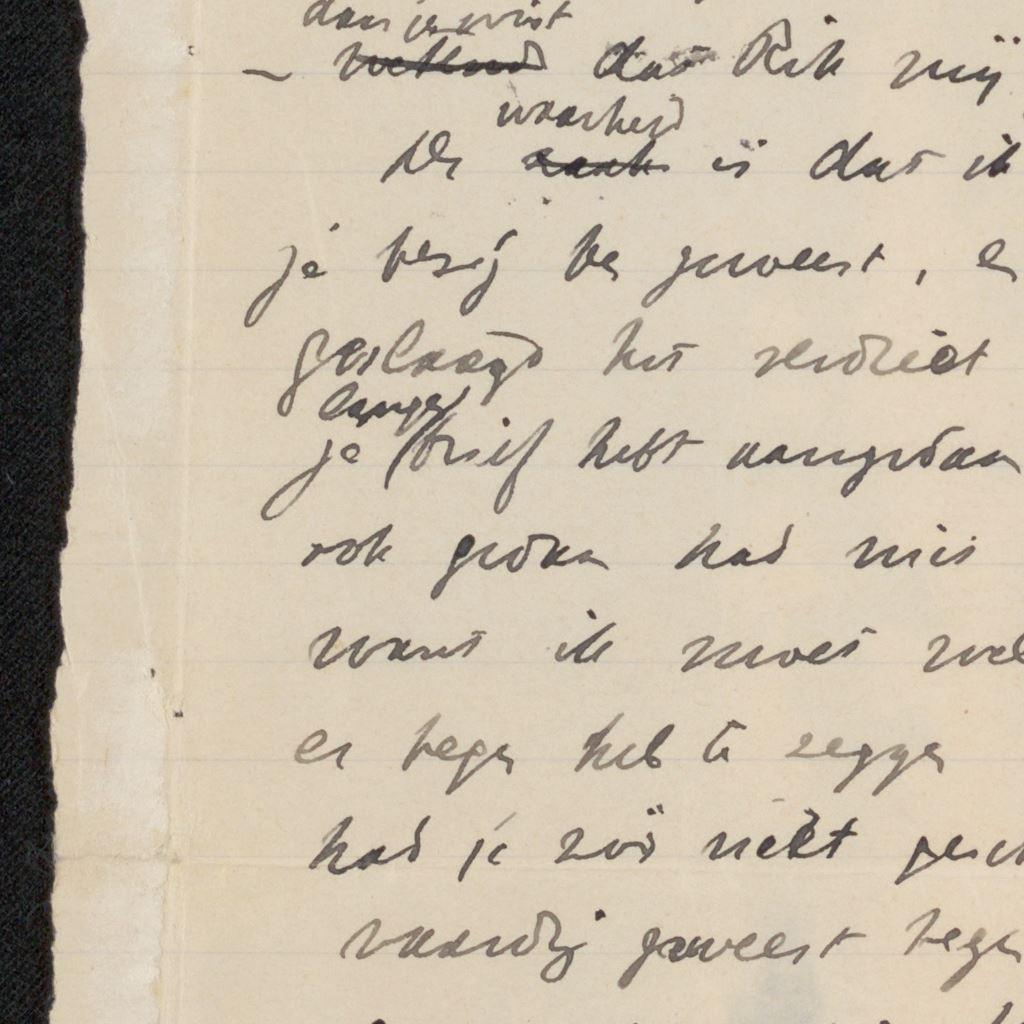 dan je wist
– ~~wetend~~ dat Rik mij
waarheid
De ~~zaak~~ is dat ik
je bezig ben geweest, e
geslaagd het verdriet
lange
je brief hebt aangedaan
ook gedaan had niet
want ik moet wel
er tegen heb te zeggen
had je zóó niét gesch
vaardig geweest tegen